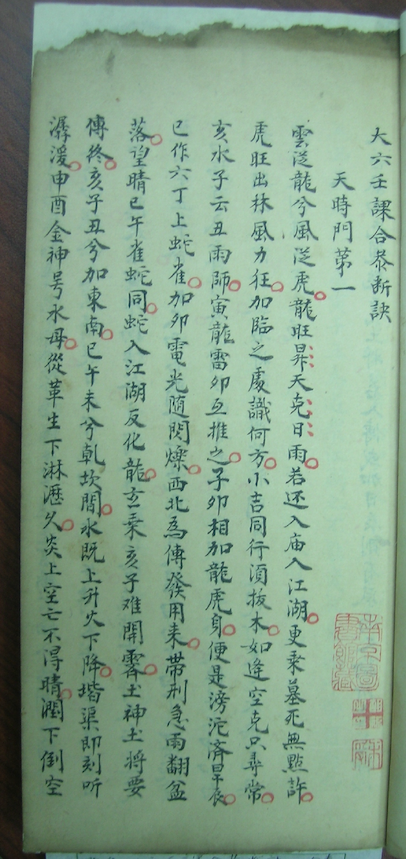 大六壬課合叅断訣
天時門第一
雲从龍兮風从虎龍旺昇天克日雨若还入庙入江湖更乘墓死無點許
虎旺出林風力狂加臨之處識何方小吉同行須拔木如逢空克只尋常
亥水子云丑雨師寅龍雷卯互推之子卯相加龍虎身便是滂沱濟旱辰
巳作六丁上蛇雀加卯電光随閃爍西北為傳發用来帶刑急雨翻盆
落望晴巳午雀蛇同蛇入江湖反化龍玄乘亥子难開霽土神土将要
傳終亥子丑兮加東南巳午未兮乹坎間水既上升火下降堦渠即刻听
潺湲申酉金神号水母從革生下淋漓久炎上空亡不得晴潤下倒空